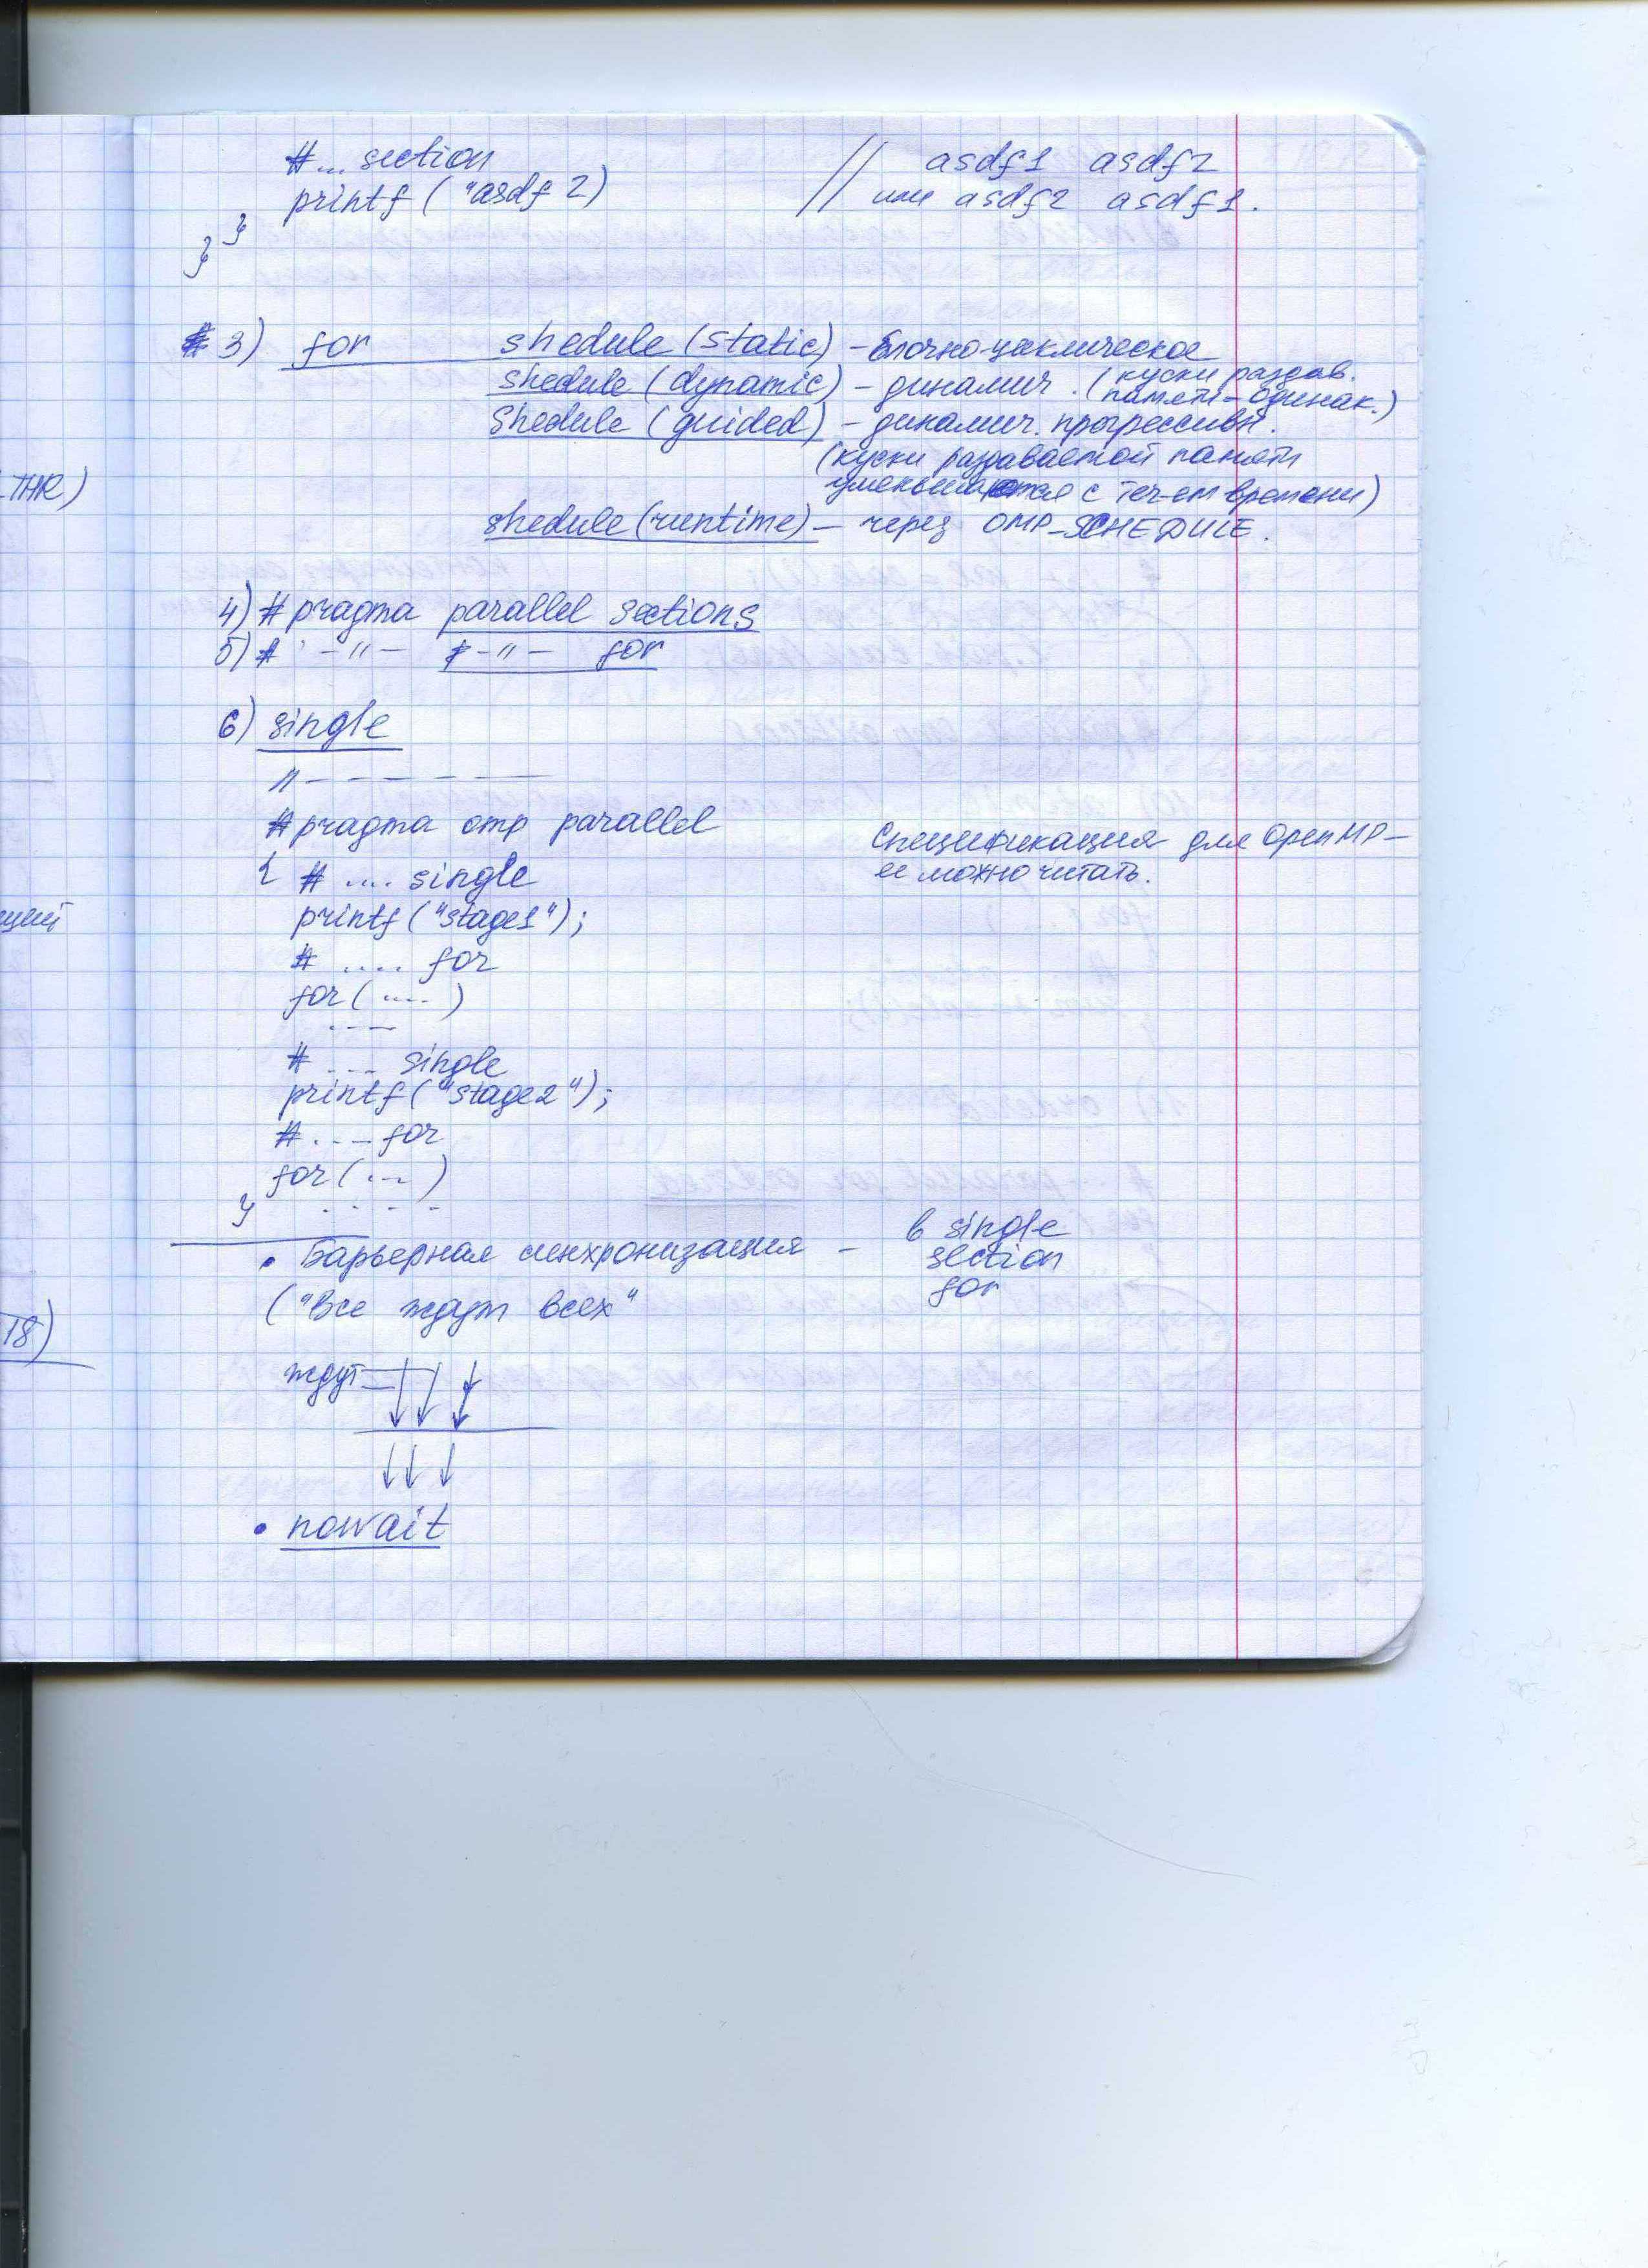 #... section
printf ("asdf 2)
}
}
// asdf1 asdf2
или asdf2 asdf1.
3) for shedule (static) – блочно-циклическое
shedule (dynamic) – динамич. (куски раздав.
памяти – одинак.)
Shedule (guided) – динамич. прогрессивн.
(куски раздаваемой памяти
уменьшаются с теч-ем времени)
shedule (runtime) – через OMP_SCHEDULE.
4) # pragma parallel sections
5) # -"- p-"- for
6) single
"- - - - - -
#pragma omp parallel
{ # .... single
printf ("stage1");
# .... for
for (....)
----
# .... single
printf ("stage2");
# .... for
for (...)
} . . . -
Спецификация для OpenMP –
ее можно читать.
• Барьерная синхронизация – в single
section
for
("Все ждут всех"
ждут
• nowait
THR)
ющий
T8)